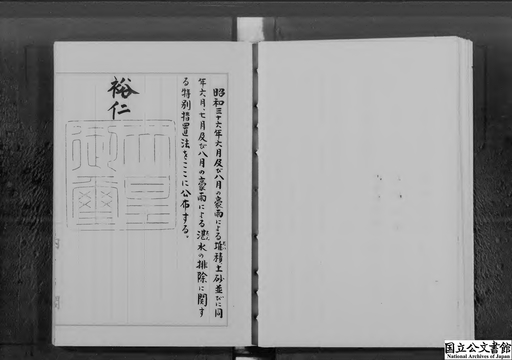 昭和三十六年六月及び八月の豪雨による堆積土砂並びに同
年六月、七月及び八月の豪雨による湛水の排除に関す
る特別措置法をここに公布する。
裕仁
天皇
御璽
国立公文書館
National Archives of Japan